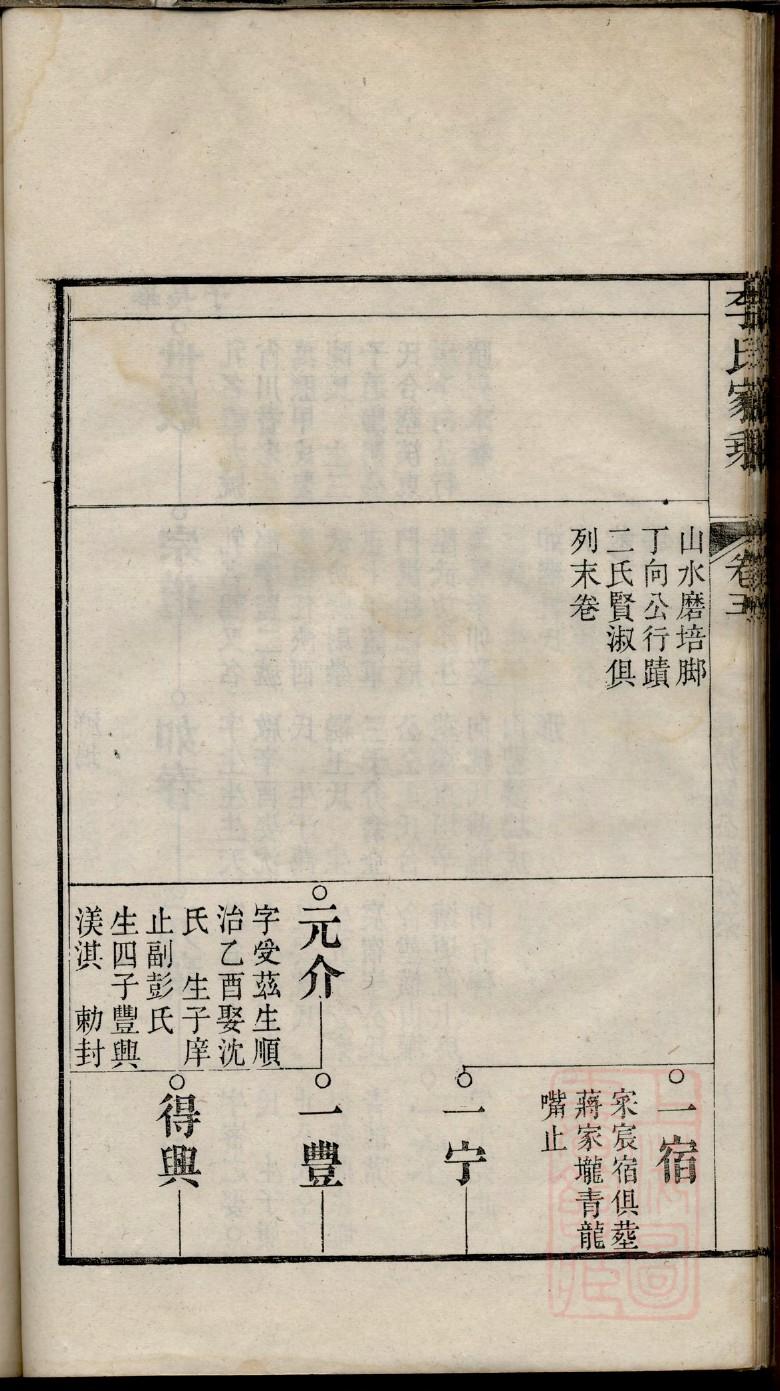 李氏家乘
卷五
山水磨培脚
丁向公行蹟
二氏賢淑俱
列末卷
元介
字受茲生順
治乙酉娶沈
氏　生子庠
止副彭氏
生四子豐興
渼淇　勅封
一宿
宋宸宿俱塟
蔣家壠青龍
嘴止
一宁
一豐
得興